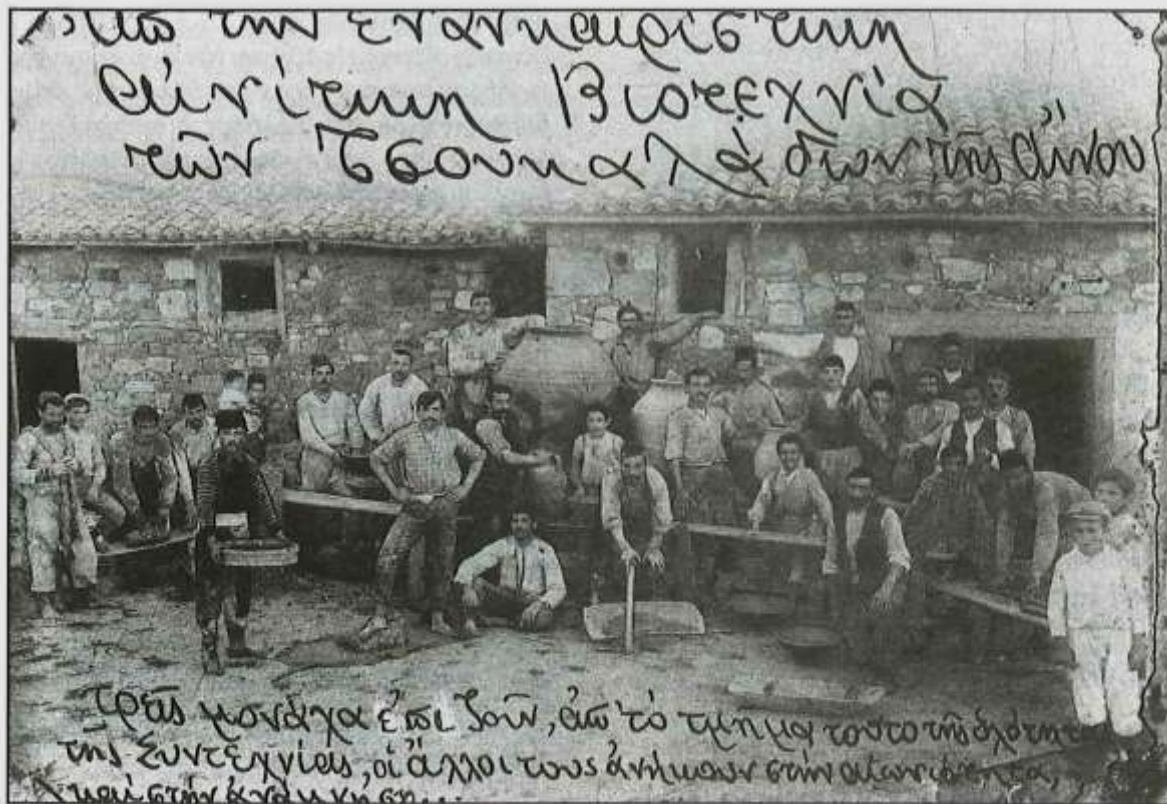 Ἀπὸ τὴν ἐναγκαιρίστικη
αἰνίτικη Βιοτεχνία
τῶν Τσουκαλάδων τῆς Αἴνου
τρεῖς μονάχα ἐπιζοῦν, ἀπ' τὸ τμῆμα τοῦτο τῆς ὁλότητα
τῆς Συντεχνίας, οἱ ἄλλοι τους ἀνήκουν στὴν αἰωνιότητα,
καὶ στὴν ἀνάμνηση...